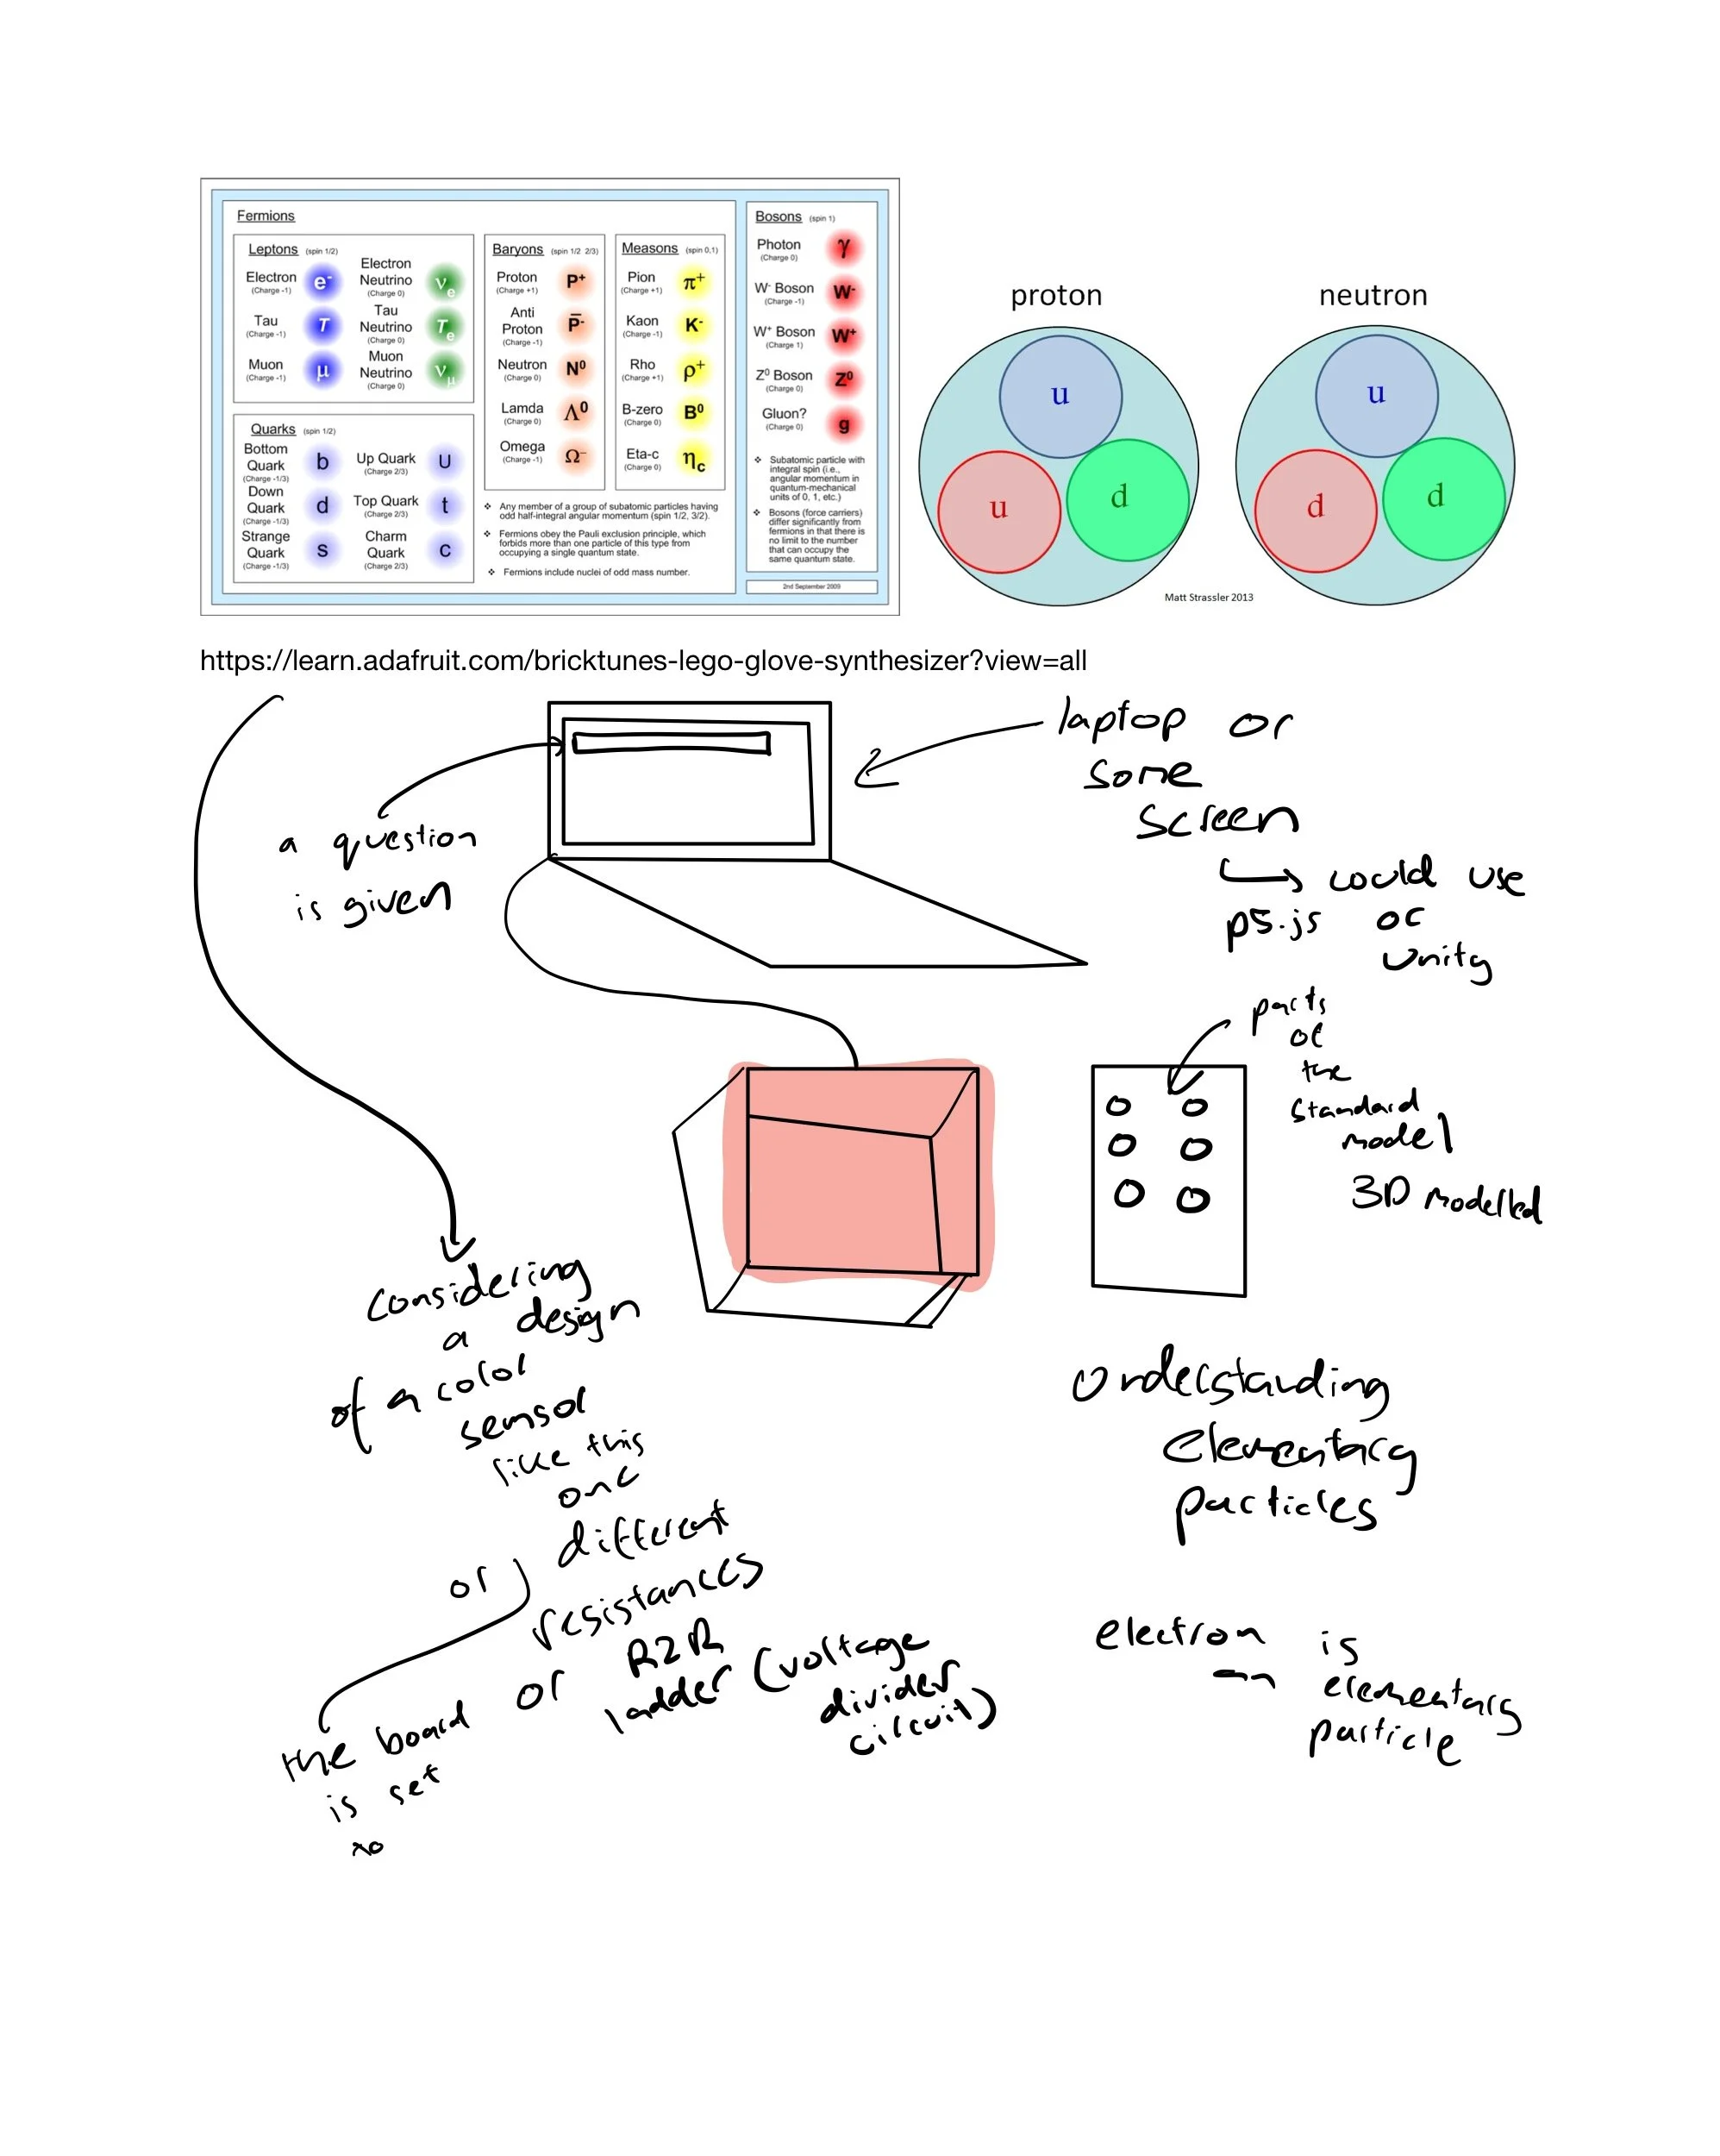 Fermions
Leptons (spin 1/2)
Electron
(Charge -1)
e-
Electron
Neutrino
(Charge 0)
νe
Tau
(Charge -1)
T
Tau
Neutrino
(Charge 0)
Te
Muon
(Charge -1)
μ
Muon
Neutrino
(Charge 0)
νμ
Quarks (spin 1/2)
Bottom
Quark
(Charge -1/3)
b
Up Quark
(Charge 2/3)
U
Down
Quark
(Charge -1/3)
d
Top Quark
(Charge 2/3)
t
Strange
Quark
(Charge -1/3)
s
Charm
Quark
(Charge 2/3)
c
Baryons (spin 1/2 2/3)
Proton
(Charge +1)
P+
Anti
Proton
(Charge -1)
P̅-
Neutron
(Charge 0)
N0
Lamda
(Charge 0)
Λ0
Omega
(Charge -1)
Ω−
Measons (spin 0,1)
Pion
(Charge +1)
π+
Kaon
(Charge -1)
K-
Rho
(Charge +1)
ρ+
B-zero
(Charge 0)
B0
Eta-c
(Charge 0)
ηc
❖ Any member of a group of subatomic particles having
odd half-integral angular momentum (spin 1/2, 3/2).
❖ Fermions obey the Pauli exclusion principle, which
forbids more than one particle of this type from
occupying a single quantum state.
❖ Fermions include nuclei of odd mass number.
Bosons (spin 1)
Photon
(Charge 0)
γ
W- Boson
(Charge -1)
W-
W+ Boson
(Charge 1)
W+
Z0 Boson
(Charge 0)
Z0
Gluon?
(Charge 0)
g
❖ Subatomic particle with
integral spin (i.e.,
angular momentum in
quantum-mechanical
units of 0, 1, etc.)
❖ Bosons (force carriers)
differ significantly from
fermions in that there is
no limit to the number
that can occupy the
same quantum state.
2nd September 2009
proton
u
u
d
neutron
u
d
d
Matt Strassler 2013
https://learn.adafruit.com/bricktunes-lego-glove-synthesizer?view=all
a question
is given
laptop or
some
screen
could use
p5.js or
unity
parts
of
the
standard
model
3D modelled
considering
a design
of a color
sensor
like this
one
or
different
resistances
or R2R
ladder (voltage
divider
circuit)
the board
is set
to
understanding
elementary
particles
electron is
an
elementary
particle